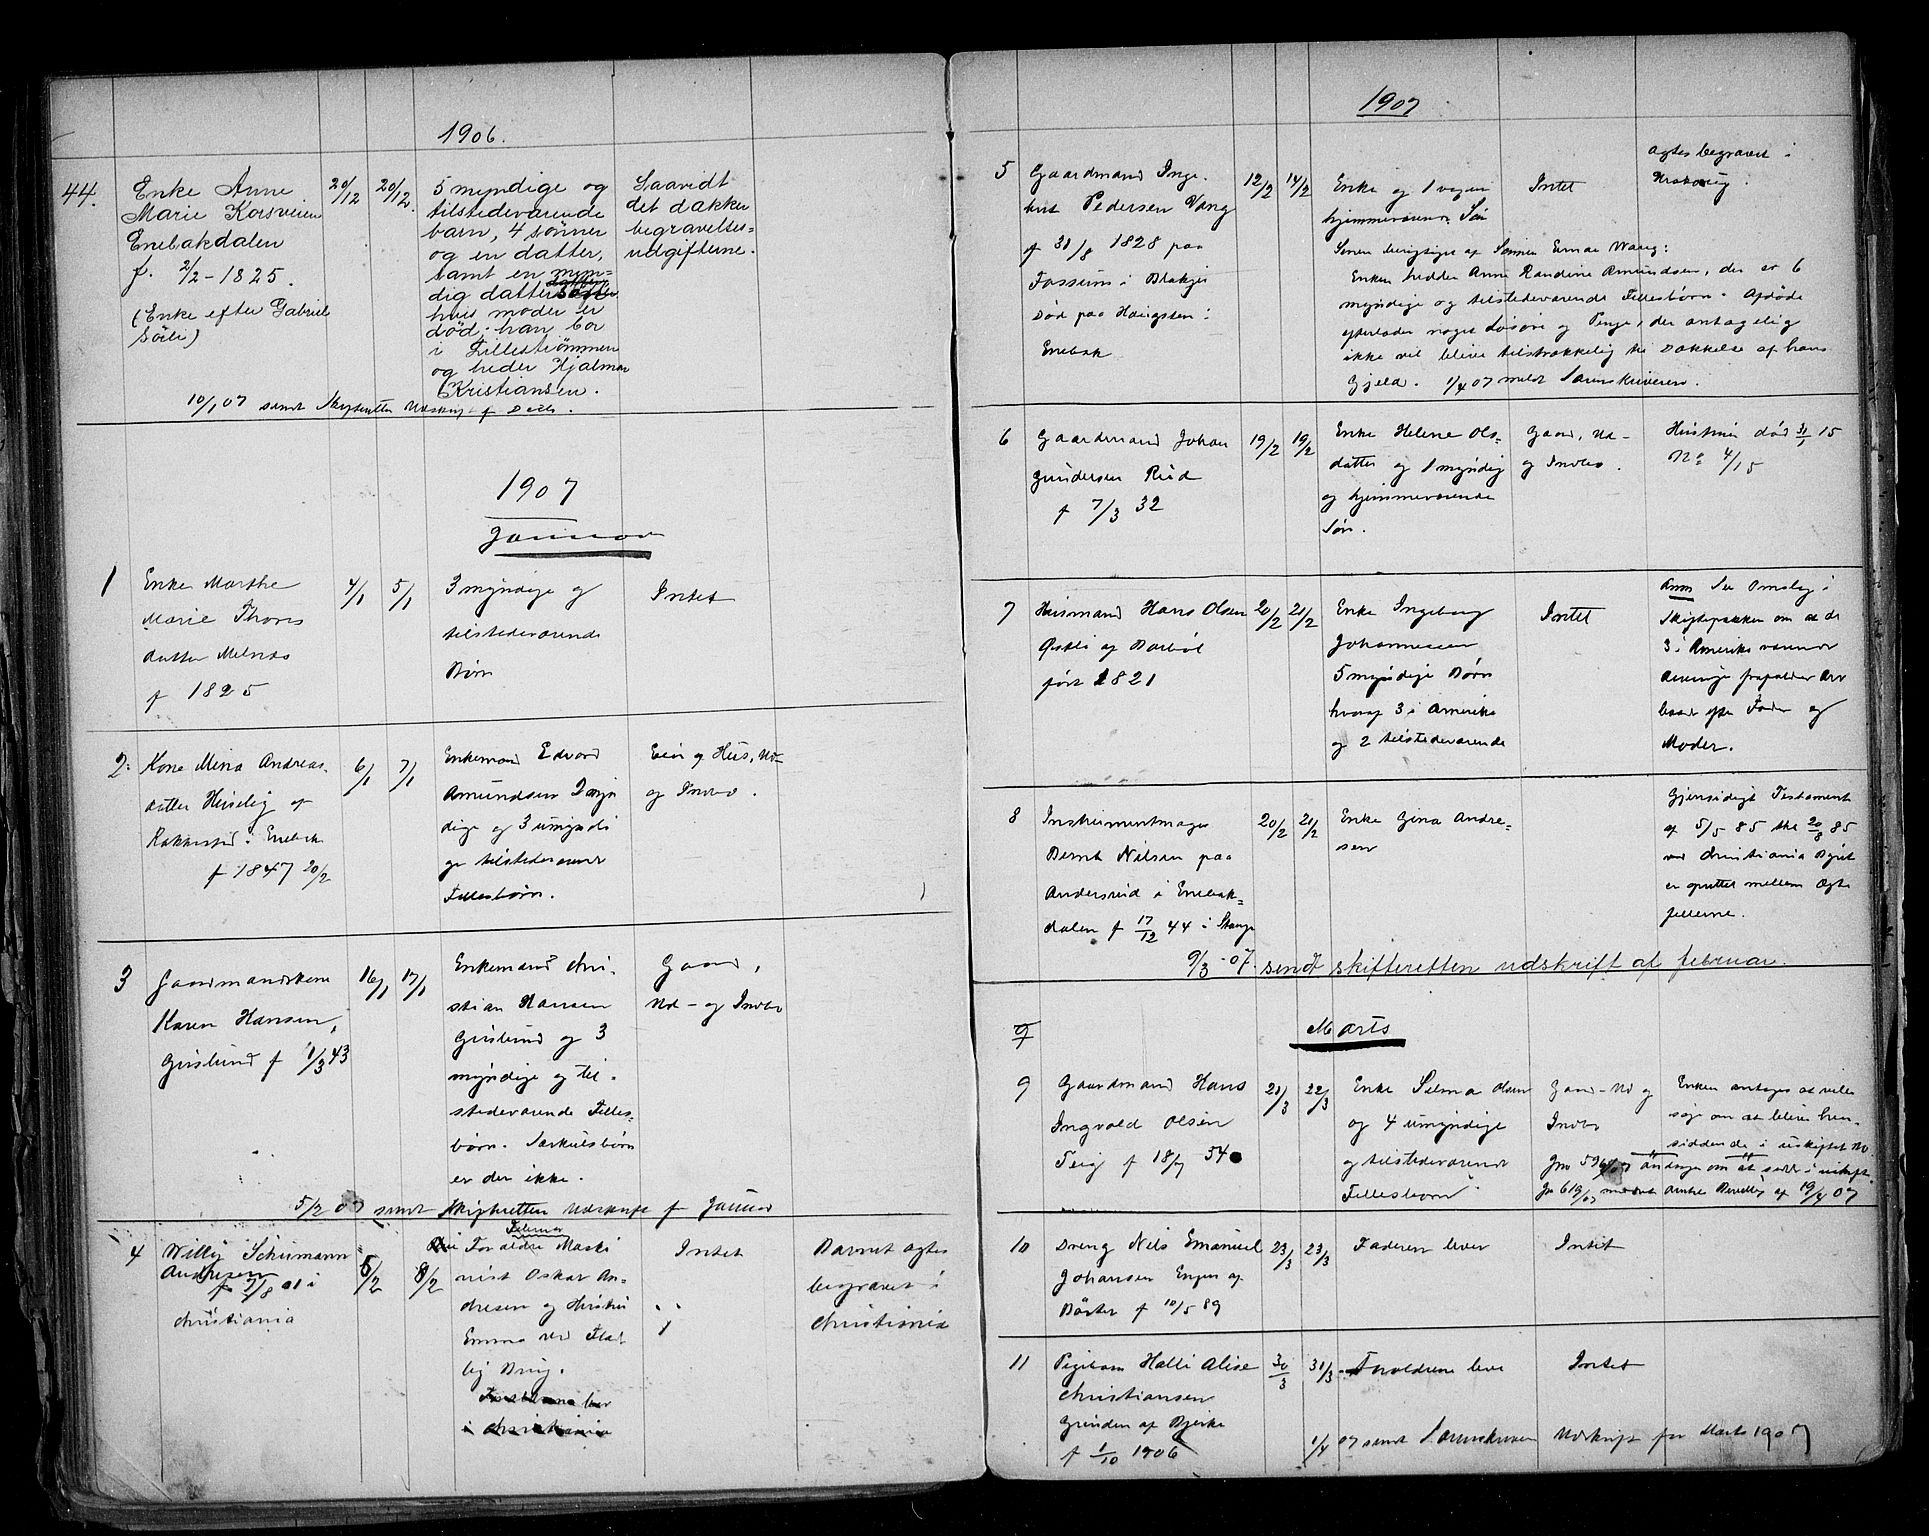 1906.
44.
Enke Anne
Marie Korsveien
Enebakdalen
f. 2/2 - 1825.
(Enke efter Gabriel
Söli)
20/12
20/12.
5 myndige og
tilstedeværende
barn, 4 sønner
og en datter,
samt en myn=
dig datter
hvis moder er
död. han bor
i Lillestrømmen
og heder Hjalmar
Kristiansen.
Saavidt
det dækker
begravelses=
udgifterne.
10/1 07 sendt Skifteretten Udskrift f Decbr.
1907
Januar
1
Enke Marthe
Marie Thores
datter Melnes
f 1825
4/1
5/1
3 myndige og
tilstedeværende
Børn
Intet
2
Kone Mina Andreas
datter af
i Enebak
f 1847 20/2
6/1
7/1
Enkemand Edvard
Amundsen 2 myn
dige og 3 umyndi
ge tilstedeværende
Fællesbørn.
Eier af Hus, Ud-
og Indbo.
3
Gaardmandskone
Karen Hansen,
f 1/3 43
16/1
17/1
Enkemand Chri-
stian Hansen
og 3
myndige og til-
stedeværende Fælles-
børn. Særkulsbørn
er der ikke.
Gaard,
Ud- og Indbo
5/2 07 sendt Skifteretten Udskrift for Januar
Februar
4
Willy Schumann
Andresen
f 7/8 01 i
Christiania
5/2
8/2
Forældre Maski
nist Oskar An-
dresen og Hustru
Emma ved Flat
by Brug.
Intet
Barnet agtes
begravet i
Christiania
1907
5
Gaardmand Inge-
bret Pedersen Vang
f 31/8 1828 paa
Fossum i Blakjer
Død paa
Enebak
12/2
14/2
Enke og 1 voxen
hjemmeværende Søn
Intet
agtes begravet i
Kraakstig.
Senere berigtiget af Sønnen Einar Wang:
Enken hedder Anne Randine Amundsen, der er 6
myndige og tilstedeværende Fællesbørn. Afdøde
efterlader noget Løsøre og Penge, der antagelig
ikke vil blive tilstrækkelig til Dækkelse af hans
Gjeld. 1/4 07 meldt Sorenskriveren.
6
Gaardmand Johan
Gundersen Rud
f 7/3 32
19/2
19/2
Enke Helene Ols-
datter og 1 myndig
og hjemmeværende
Søn.
Gaard, Ud-
og Indbo.
Hustru død 31/1 15
No 4/15
7
Husmand Hans Olsen
født 1821
20/2
21/2
Enke Ingeborg
Johannessen
5 myndige Børn
hvoraf 3 i Amerika
og 2 tilstedeværende
Intet
Anm Se Omslag i
Skiftepakken om at de
3 i Amerika værende
Arvinge frafalder Arv
baade efter Fader og
Moder.
8
Instrumentmager
Bernt Nilsen paa
Andersrud i Enebak-
dalen f 17/12 44 i Stange
20/2
21/2
Enke Gina Andre-
sen
Gjensidigt Testament
af 5/5 85 thl 20/8 85
ved Christiania Byret
er oprettet mellem Ægte
fellerne.
9/3 - 07. sendt skifteretten udskrift af februar.
Marts
9
Gaardmand Hans
Ingvald Olsen
Teig f 18/7 54
21/3
22/3
Enke Selma Olsen
og 4 umyndige
og tilstedeværende
Fællesbørn
Gaard - Ud og
Indbo
Enken antages at ville
søge om at blive hen
siddende i uskiftet Bo
10
Dreng Nils Emanuel
Johansen Engen af
Børter f 10/5 89
23/3
23/3
Faderen lever
Intet
11
Pigebarn Halli Alise
Christiansen
Grinden af Bjerke
f 1/10 1906
30/3
31/3
Forældrene leve
Intet
1/4 07 sendt Sorenskriveren Udskrift for Marts 1907